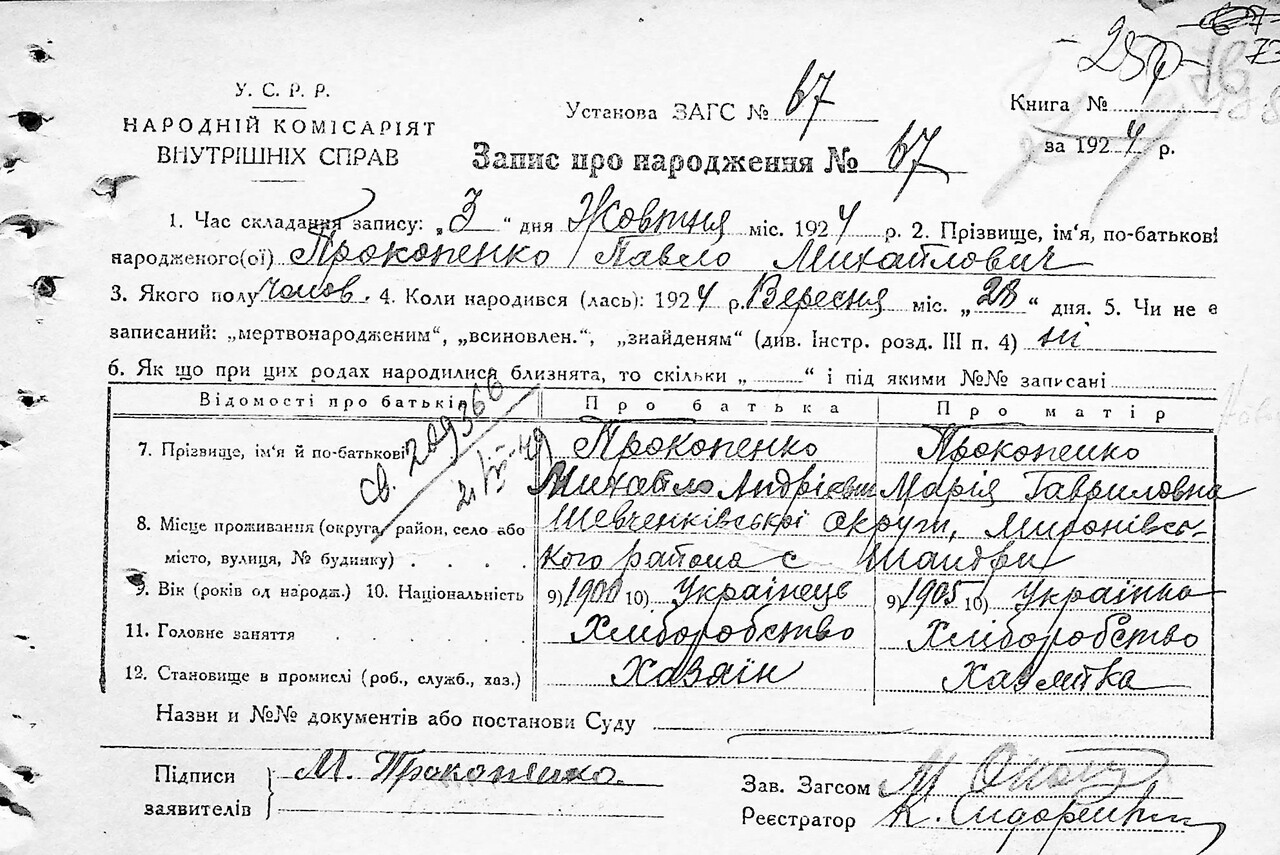 У. С. Р. Р.
НАРОДНІЙ КОМІСАРІЯТ
ВНУТРІШНІХ СПРАВ
Установа ЗАГС № 67
Книга №
за 1924 р.
Запис про народження № 67
1. Час складання запису: „ 3 “ дня Жовтня міс. 1924 р. 2. Прізвище, ім‘я, по-батькові
народженого(ої) Прокопенко Павло Михайлович
3. Якого полу чолов. 4. Коли народився (лась): 1924 р. Вересня міс. „ 28 “ дня. 5. Чи не є
записаний: „мертвонародженим“, „всиновлен.“, „знайденям“ (див. Інстр. розд. III п. 4) ні
6. Як що при цих родах народилися близнята, то скільки „ “ і під якими №№ записані
Відомості про батьків Про батька Про матір
св. 209366
21/III-49
7. Прізвище, ім‘я й по-батькові Прокопенко Прокопенко
Михайло Андрієвич Марія Гавриловна
8. Місце проживання (округа, район, село або Шевченківської округи, Миронівсь-
місто, вулиця, № будинку) кого района с Шандри
9. Вік (років од народж.) 10. Національність 9) 1900 10) Українець 9) 1905 10) Українка
11. Головне заняття Хліборобство Хліборобство
12. Становище в промислі (роб., служб., хаз.) Хазяїн Хазяйка
Назви и №№ документів або постанови Суду
Підписи М. Прокопенко
заявителів
Зав. Загсом М.
Реєстратор К. Сидоренко